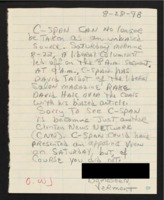 8-28-98
C-SPAN CAN NO LONGER
BE TAKEN AS AN UNBIASED
SOURCE. SATURDAY MORNING
8-22, A LIBERAL COLUMNIST
LED OFF ON THE 8 A.M.
AT 9 A.M., C-SPAN HAD
DAVID TALBOT OF THE LIBERAL
SALON MAGAZINE
DAVID HALE OVER THE COALS
WITH HIS BIASED ARTICLE.
SORRY TO SEE C-SPAN
IS BECOME JUST ANOTHER
CLINTON NEWS NETWORK
(CNN). C-SPAN COULD HAVE
PRESENTED AN OPPOSED VIEW
ON SATURDAY, BUT, OF
COURSE YOU DID NOT!
VERMONT